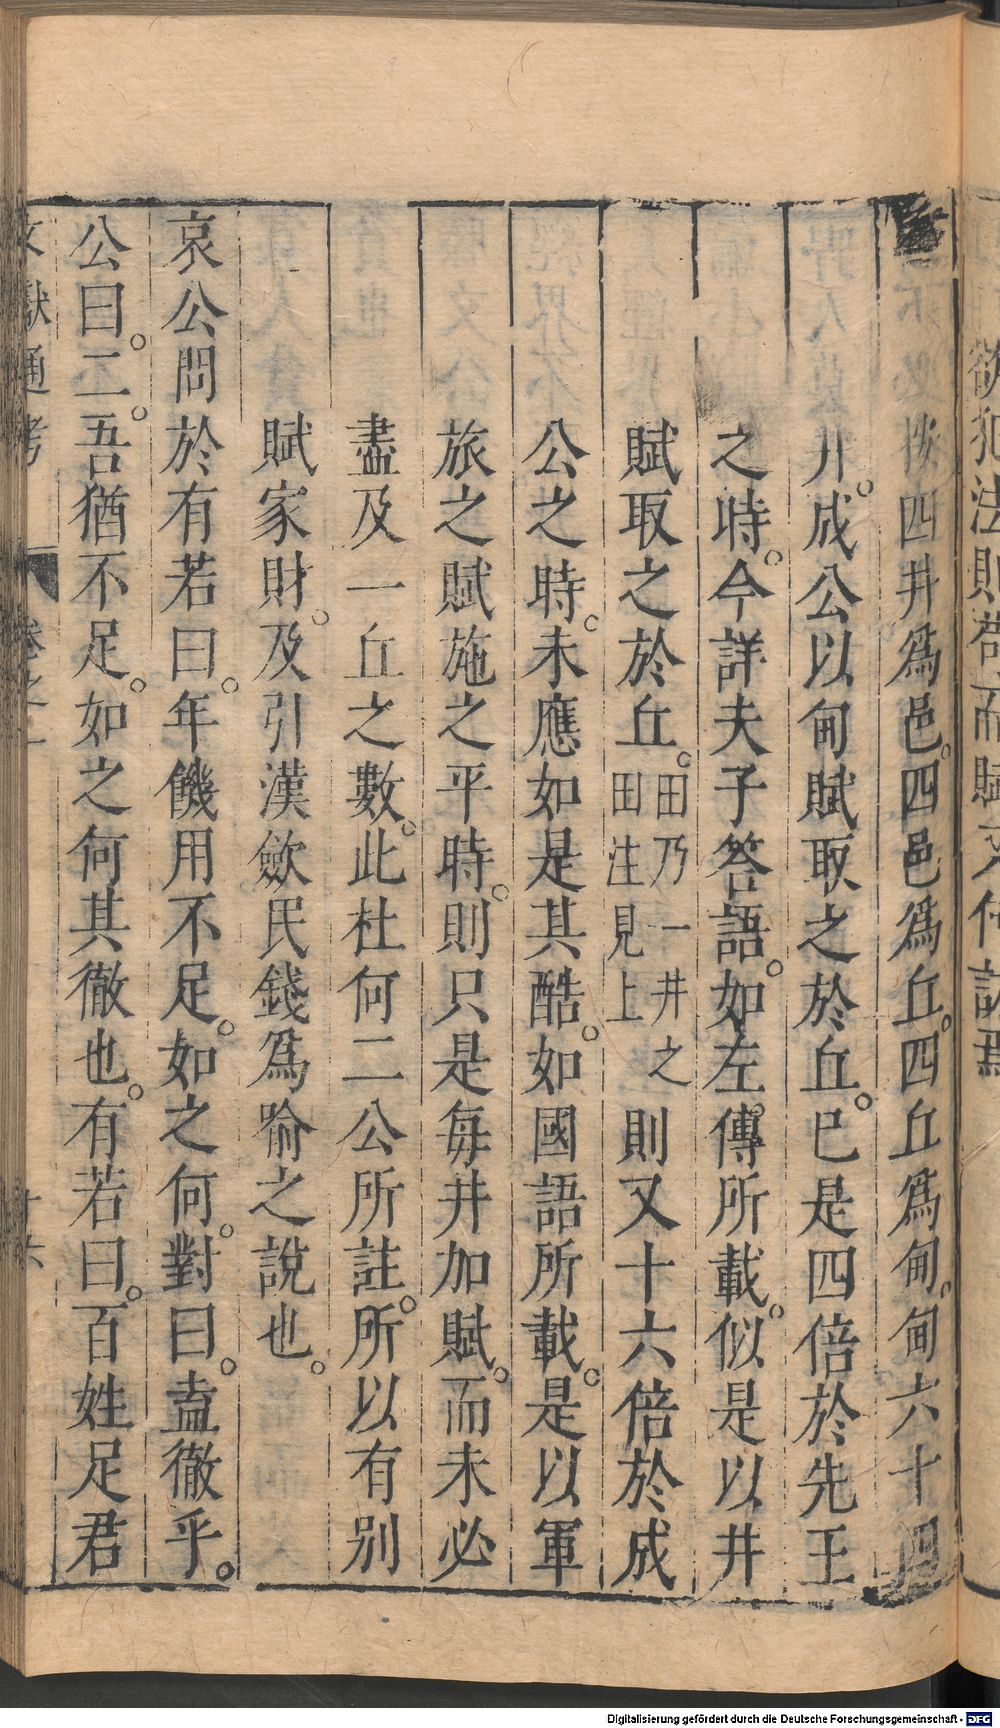 按四井爲邑。四邑爲丘。四丘爲甸。甸六十四
井。成公以甸賦取之於丘。已是四倍於先王
之時。今詳夫子答語。如左傳所載。似是以井
賦取之於丘。田乃一井之田注見上則又十六倍於成
公之時。未應如是其酷。如國語所載。是以軍
旅之賦施之平時。則只是每井加賦。而未必
盡及一丘之數。此杜何二公所註。所以有别
賦家財。及引漢歛民錢爲喻之說也。
哀公問於有若曰。年饑用不足。如之何。對曰。盍徹乎。
公曰。二。吾猶不足。如之何其徹也。有若曰。百姓足君
文獻通考 卷之一 十六
Digitalisierung gefördert durch die Deutsche Forschungsgemeinschaft - DFG